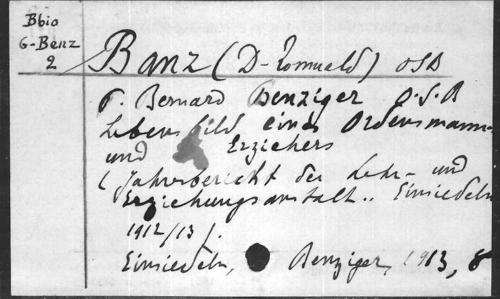 Bbio
G-Benz
2
Banz (D-Romuald) OSB
P. Bernard Benziger O.S.B
Lebensbild eines Ordensmann-
und Erziehers
(Jahresbericht der Lehr- und
Erziehungsanstalt .. Einsiedeln
1912/13).
Einsiedeln, Benziger, 1913, 8